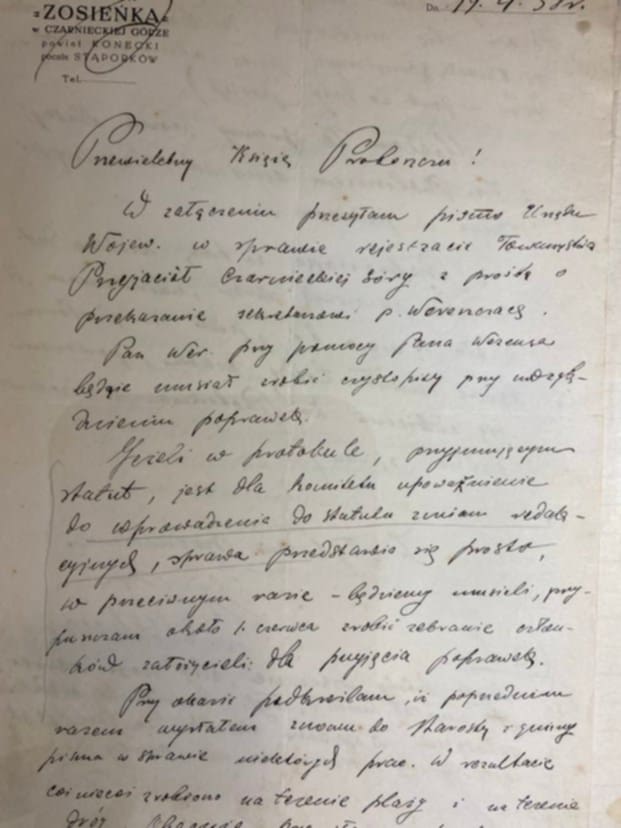 "ZOSIEŃKA"
w CZARNIECKIEJ GÓRZE
powiat KONECKI
poczta STĄPORKÓW
Tel.
Dn. 19. 4. 38 r.
Przewielebny Księże Proboszczu!
W załączeniu przesyłam pismo Urzędu
Wojew. w sprawie rejestracji Towarzystwa
Przyjaciół Czarnieckiej Góry z prośbą o
przekazanie sekretarzowi p.
Pan Wer. przy pomocy Pana
będzie musiał zrobić czystopisy przy uwzglę-
dnieniu poprawek.
Jeżeli w protokule, przyjmującym
statut, jest dla komitetu upoważnienie
do wprowadzenia do statutu zmian redak-
cyjnych, sprawa przedstawia się prosto,
w przeciwnym razie - będziemy musieli, przy-
puszczam około 1. czerwca zrobić zebranie człon-
ków założycieli dla przyjęcia poprawek.
Przy okazji podkreślam, iż poprzednim
razem wysłałem znowu do Starosty i gminy
pisma w sprawie niektórych prac. W rezultacie
coś niecoś zrobiono na terenie plaży i na terenie
dróg